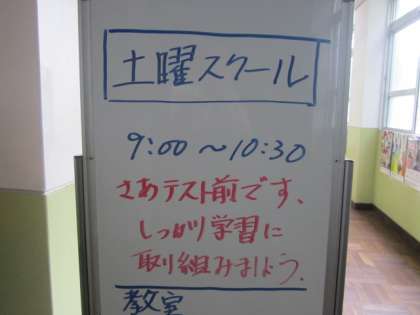 土曜スクール
9:00〜10:30
さあテスト前です、
しっかり学習に
取り組みましょう。
教室